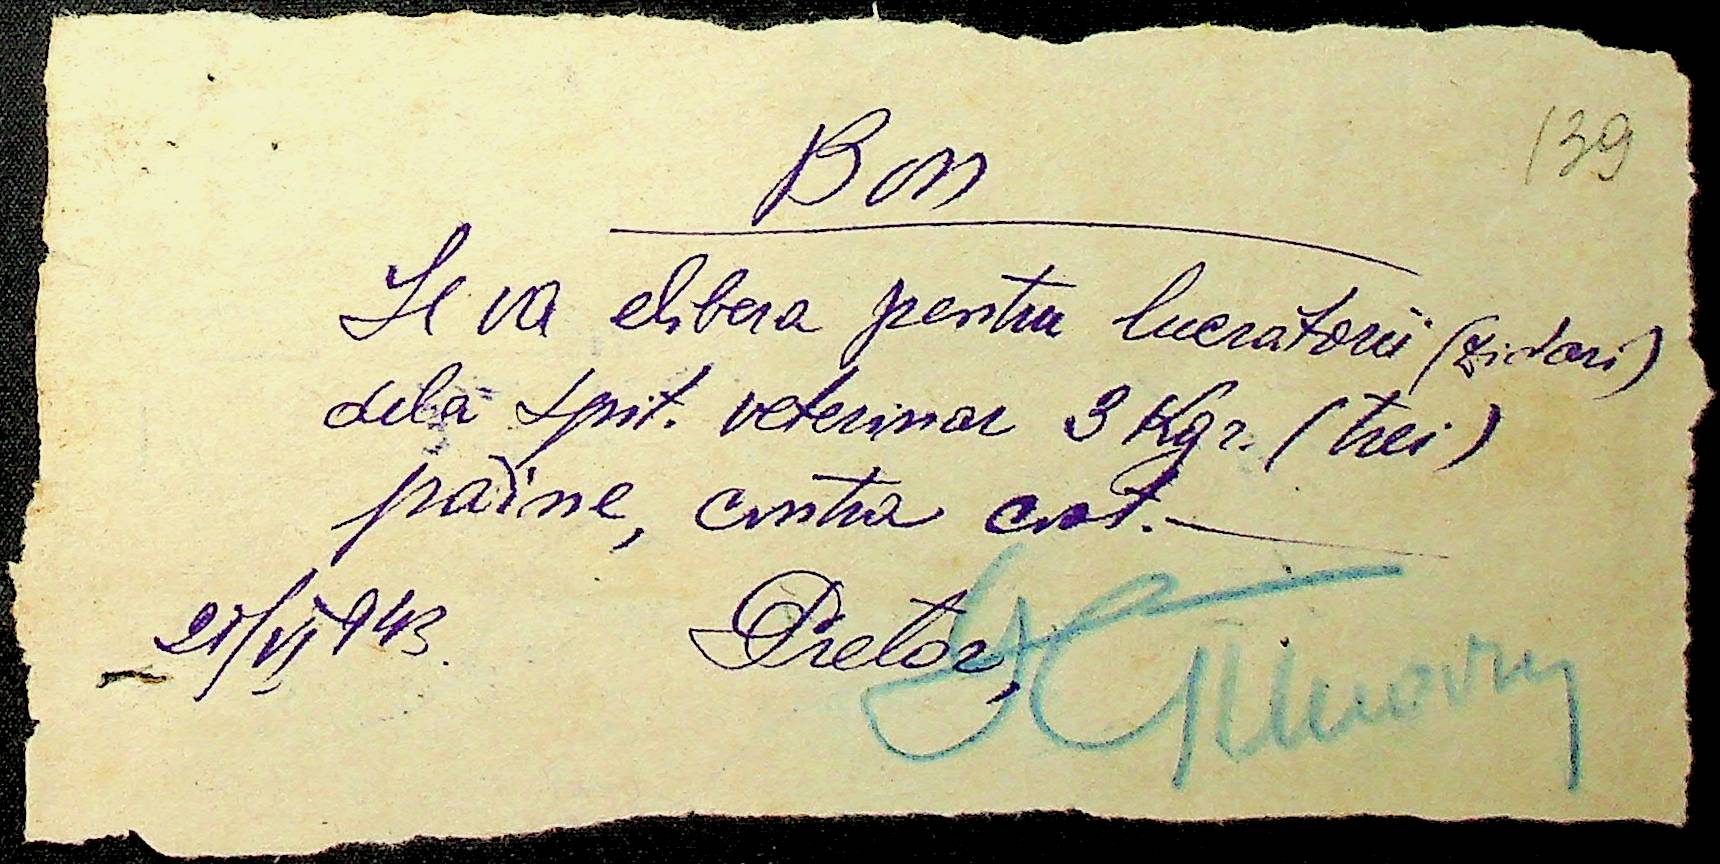 139
Bon
Se va elibera pentru lucrătorii (zidari)
dela spit. veterinar 3 Kgr. (trei)
paine, contra cost.
21/VI 943. Pretor,